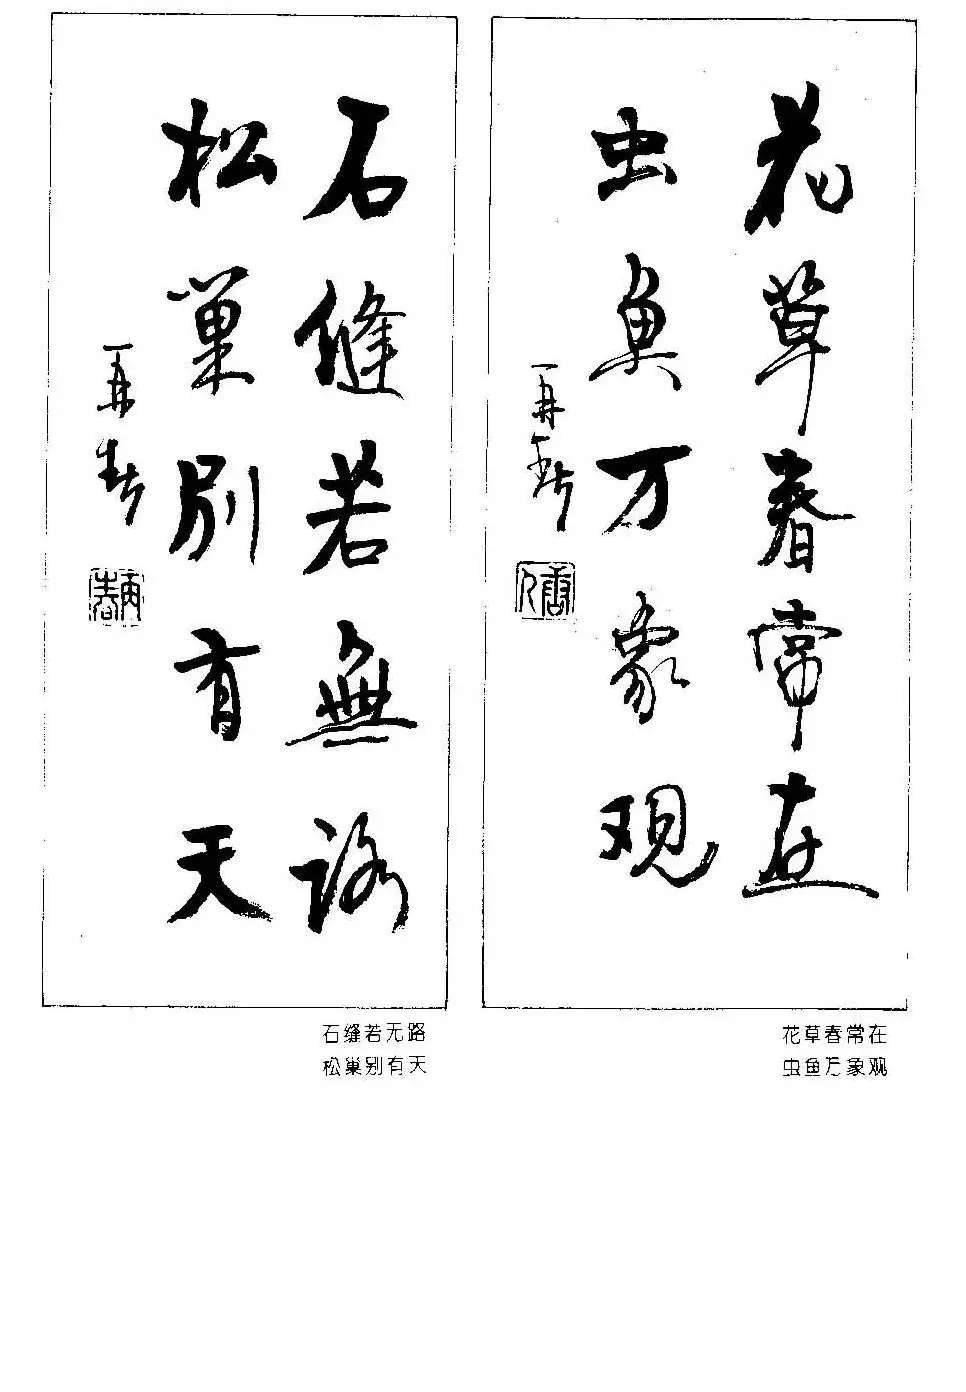 花草春常在
虫鱼万象观
再春
花草春常在
虫鱼万象观
石缝若無路
松巢别有天
再春
再春
石缝若无路
松巢别有天